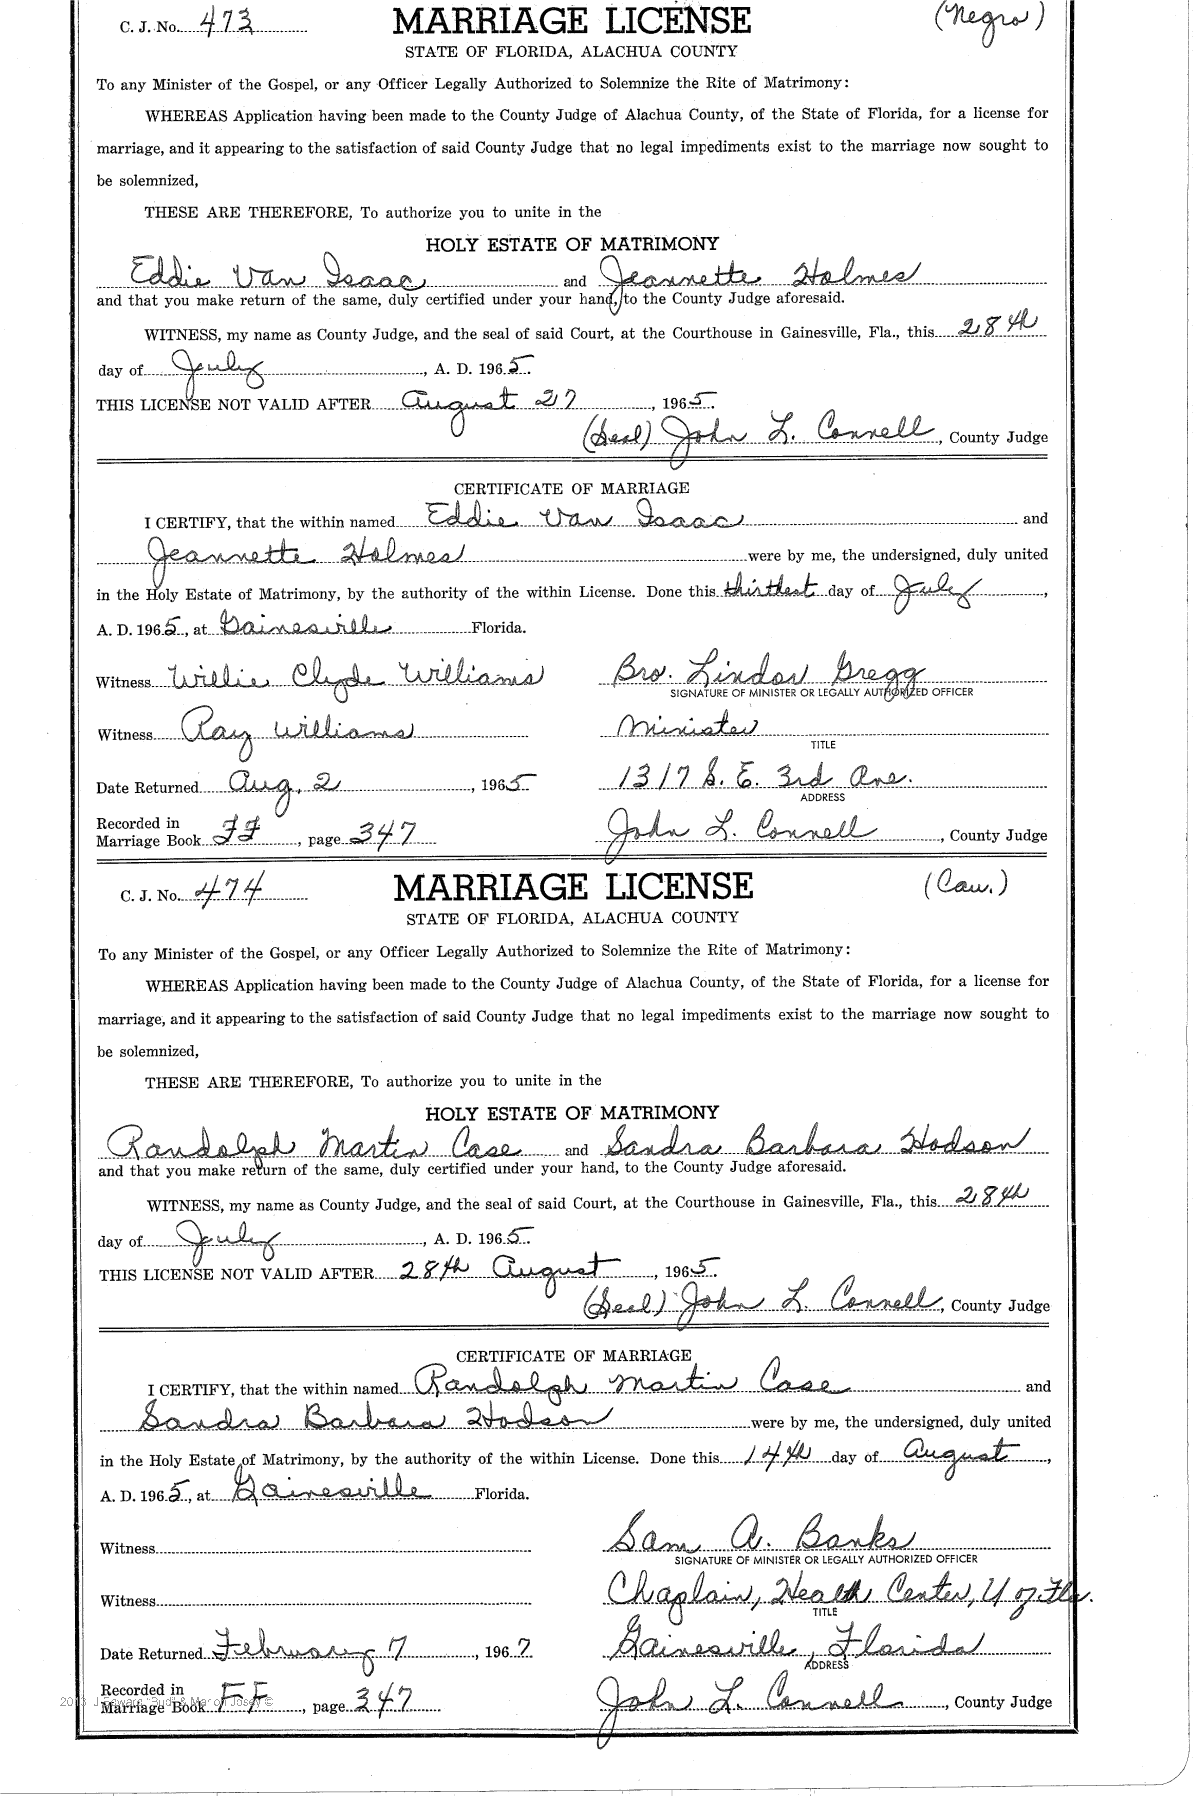 C. J. No. 473 MARRIAGE LICENSE (Negro)
STATE OF FLORIDA, ALACHUA COUNTY
To any Minister of the Gospel, or any Officer Legally Authorized to Solemnize the Rite of Matrimony:
WHEREAS Application having been made to the County Judge of Alachua County, of the State of Florida, for a license for
marriage, and it appearing to the satisfaction of said County Judge that no legal impediments exist to the marriage now sought to
be solemnized,
THESE ARE THEREFORE, To authorize you to unite in the
HOLY ESTATE OF MATRIMONY
Eddie Van Isaac and Jeannette Holmes
and that you make return of the same, duly certified under your hand, to the County Judge aforesaid.
WITNESS, my name as County Judge, and the seal of said Court, at the Courthouse in Gainesville, Fla., this 28th
day of July, A. D. 1965.
THIS LICENSE NOT VALID AFTER August 27, 1965.
(Seal) John L. Connell, County Judge
CERTIFICATE OF MARRIAGE
I CERTIFY, that the within named Eddie Van Isaac and
Jeannette Holmes were by me, the undersigned, duly united
in the Holy Estate of Matrimony, by the authority of the within License. Done this day of July,
A. D. 1965, at Gainesville Florida.
Witness Willie Clyde Williams Bro. Lindor Gregg
SIGNATURE OF MINISTER OR LEGALLY AUTHORIZED OFFICER
Witness Ray Williams Minister
TITLE
Date Returned Aug. 2, 1965 1317 S. E. 3rd Ave.
ADDRESS
Recorded in
Marriage Book FF, page 347 John L. Connell, County Judge
C. J. No. 474 MARRIAGE LICENSE (Cau.)
STATE OF FLORIDA, ALACHUA COUNTY
To any Minister of the Gospel, or any Officer Legally Authorized to Solemnize the Rite of Matrimony:
WHEREAS Application having been made to the County Judge of Alachua County, of the State of Florida, for a license for
marriage, and it appearing to the satisfaction of said County Judge that no legal impediments exist to the marriage now sought to
be solemnized,
THESE ARE THEREFORE, To authorize you to unite in the
HOLY ESTATE OF MATRIMONY
Randolph Martin Case and Sandra Barbara Hodson
and that you make return of the same, duly certified under your hand, to the County Judge aforesaid.
WITNESS, my name as County Judge, and the seal of said Court, at the Courthouse in Gainesville, Fla., this 28th
day of July, A. D. 1965.
THIS LICENSE NOT VALID AFTER 28th August, 1965.
(Seal) John L. Connell, County Judge
CERTIFICATE OF MARRIAGE
I CERTIFY, that the within named Randolph Martin Case and
Sandra Barbara Hodson were by me, the undersigned, duly united
in the Holy Estate of Matrimony, by the authority of the within License. Done this 14th day of August,
A. D. 1965, at Gainesville Florida.
Witness Sam A. Banks
SIGNATURE OF MINISTER OR LEGALLY AUTHORIZED OFFICER
Witness Chaplain, Health Center, U of Fla.
TITLE
Date Returned February 7, 1967 Gainesville, Florida
ADDRESS
Recorded in
Marriage Book FF, page 347 John L. Connell, County Judge